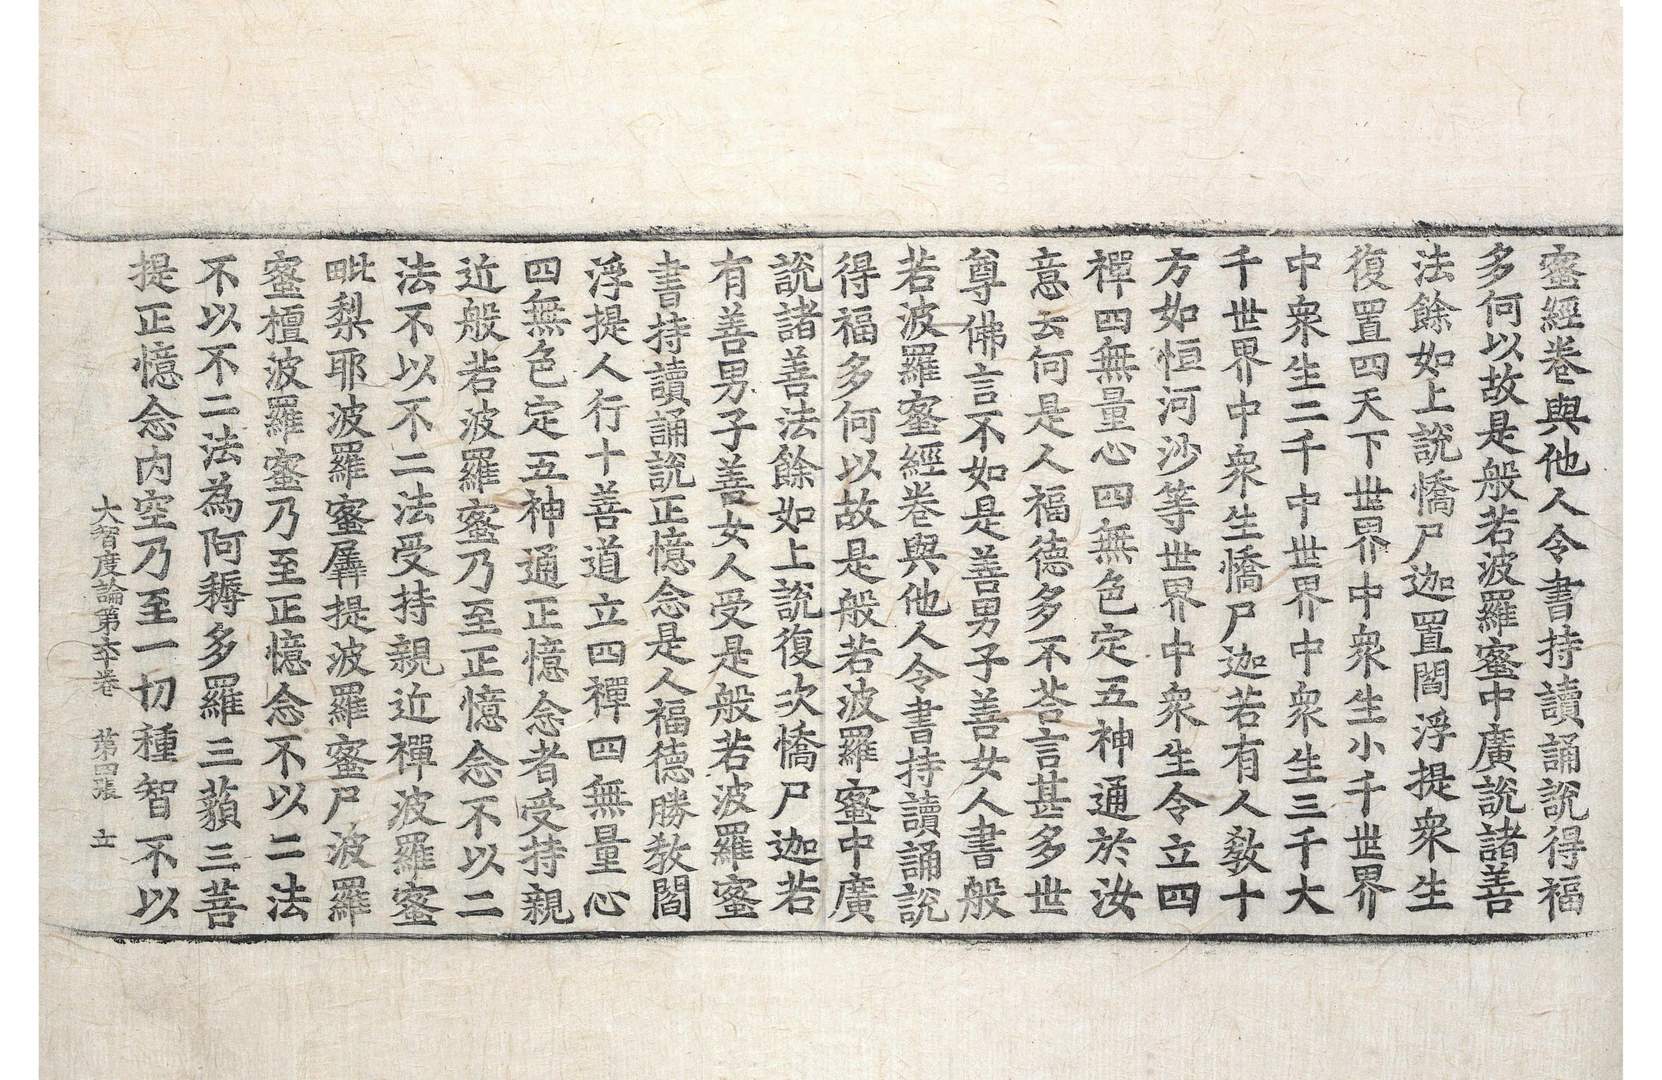 蜜經卷與他人令書持讀誦說得福
多何以故是般若波羅蜜中廣說諸善
法餘如上說憍尸迦置閻浮提衆生
復置四天下世界中衆生小千世界
中衆生二千中世界中衆生三千大
千世界中衆生憍尸迦若有人教十
方如恒河沙等世界中衆生令立四
禪四無量心四無色定五神通於汝
意云何是人福德多不荅言甚多世
尊佛言不如是善男子善女人書般
若波羅蜜經卷與他人令書持讀誦說
得福多何以故是般若波羅蜜中廣
說諸善法餘如上說復次憍尸迦若
有善男子善女人受是般若波羅蜜
書持讀誦說正憶念是人福德勝教閻
浮提人行十善道立四禪四無量心
四無色定五神通正憶念者受持親
近般若波羅蜜乃至正憶念不以二
法不以不二法受持親近禪波羅蜜
毗梨耶波羅蜜羼提波羅蜜尸波羅
蜜檀波羅蜜乃至正憶念不以二法
不以不二法為阿耨多羅三藐三菩
提正憶念內空乃至一切種智不以
大智度論第六十卷 第四張 立